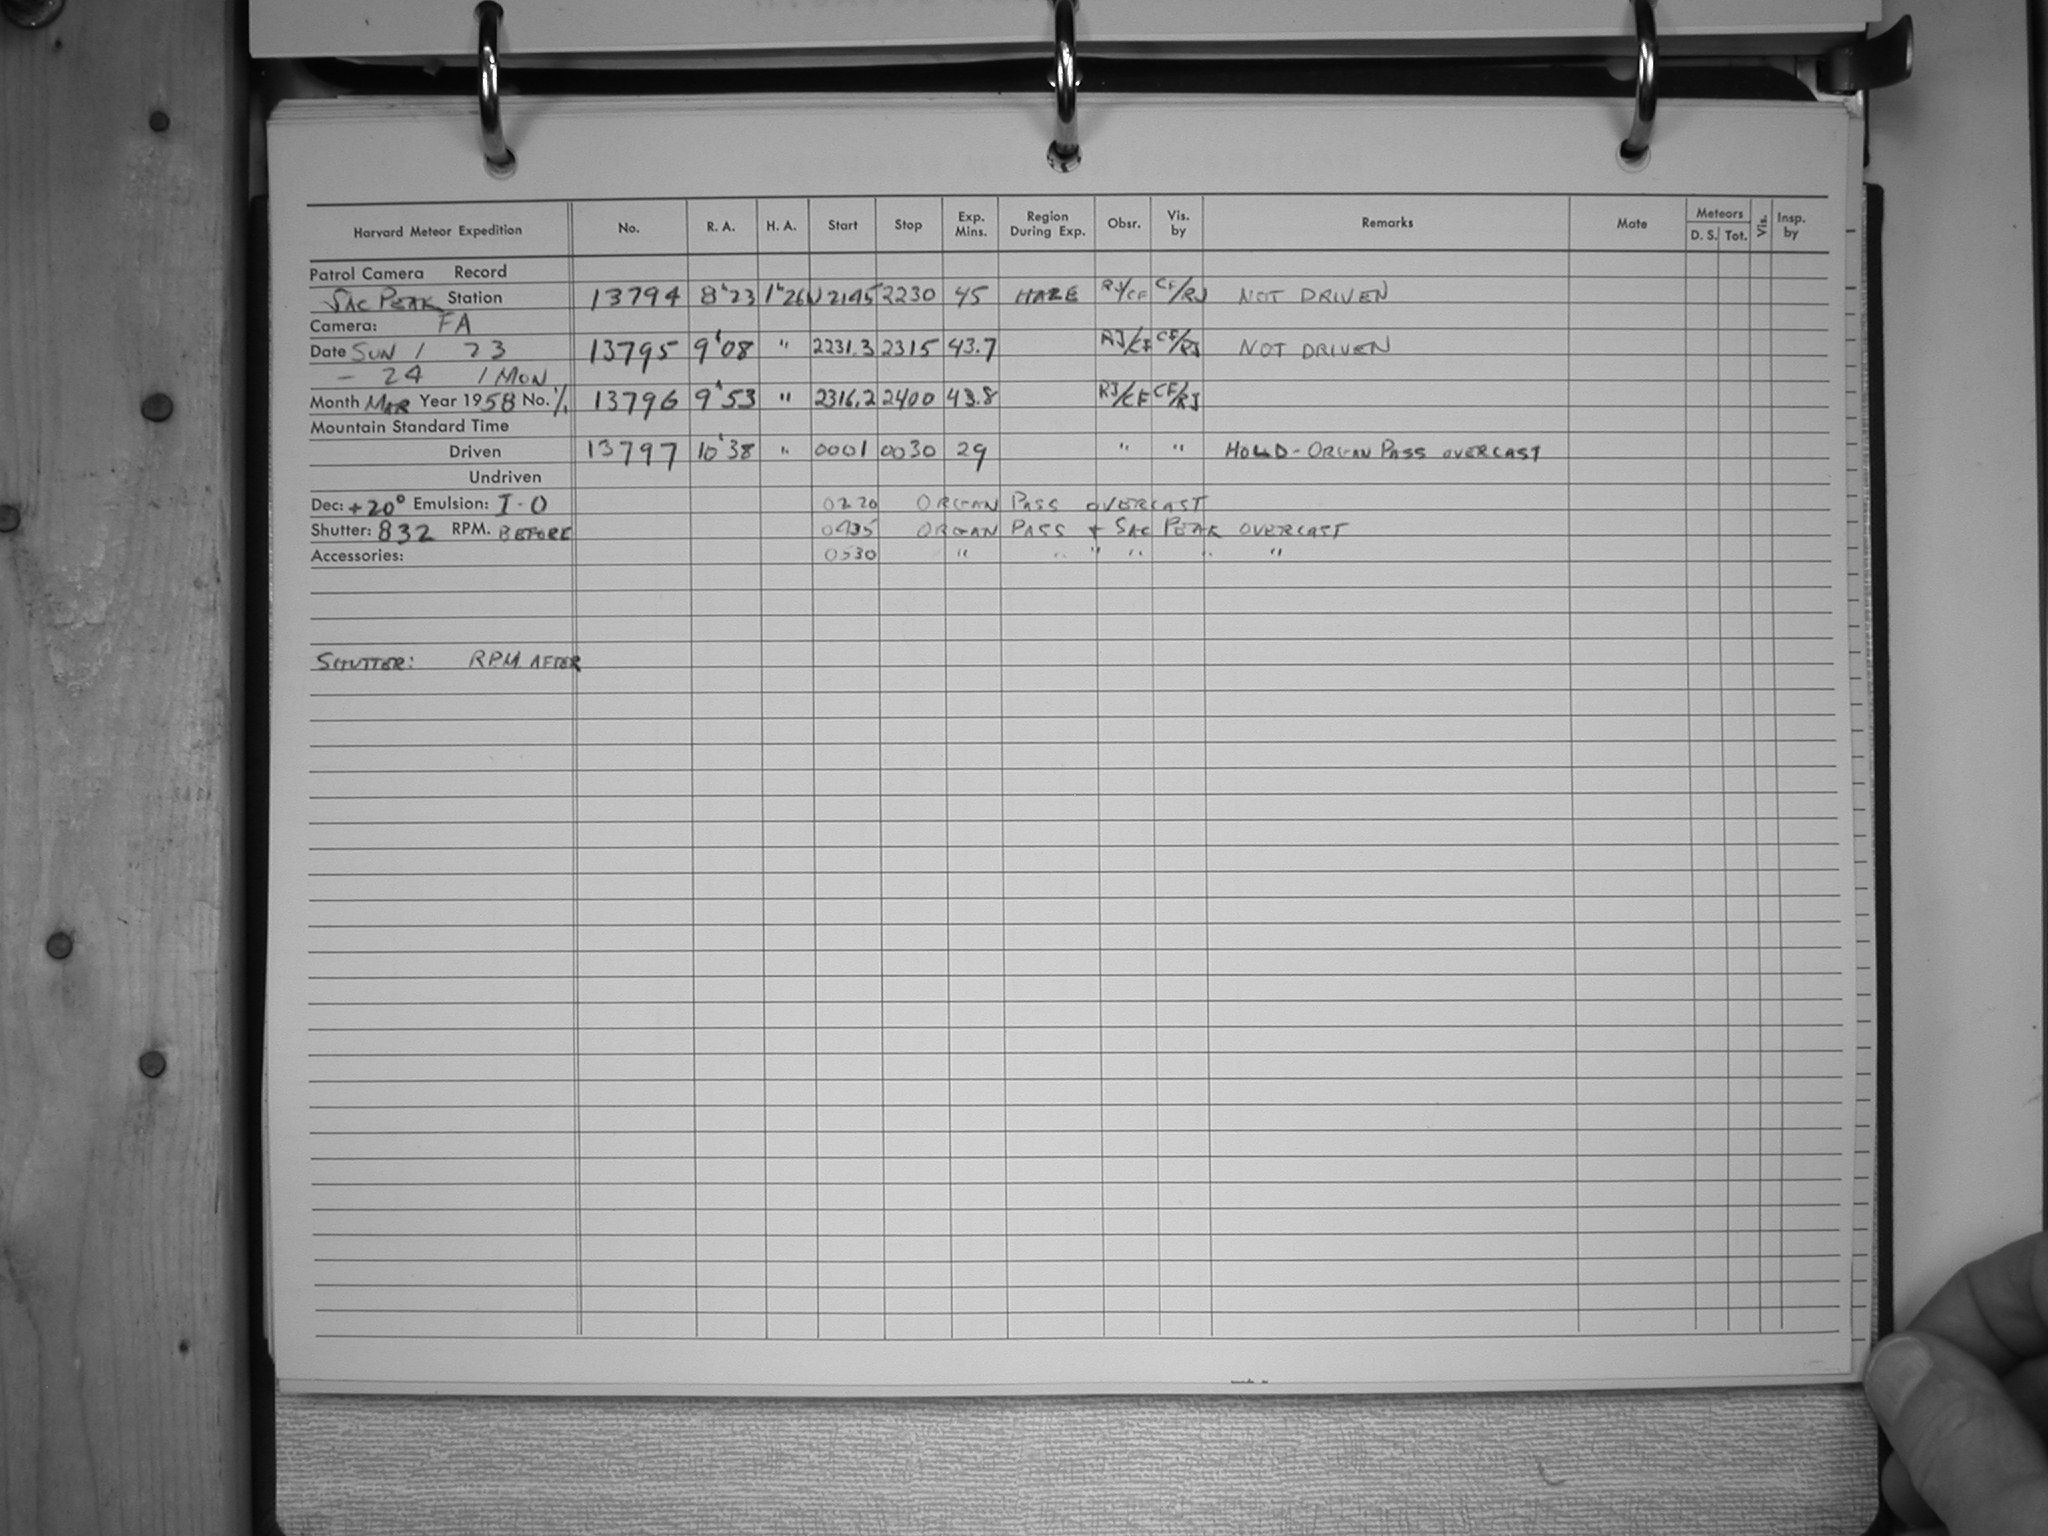 Harvard Meteor Expedition No. R. A. H. A. Start Stop Exp. Mins. Region During Exp. Obsr. Vis. by Remarks Mate Meteors D. S. Tot. Vis. Insp. by
Patrol Camera Record
SAC PEAK Station 13794 8ʰ23 1ʰ26W 2145 2230 45 HAZE RJ/CF CF/RJ NOT DRIVEN
Camera: FA
Date SUN / 23 13795 9ʰ08 " 2231.3 2315 43.7 RJ/CF CF/RJ NOT DRIVEN
- 24 / MON
Month MAR Year 1958 No. 1/1 13796 9ʰ53 " 2316.2 2400 43.8 RJ/CF CF/RJ
Mountain Standard Time
Driven 13797 10ʰ38 " 0001 0030 29 " " HOLD - ORGAN PASS OVERCAST
Undriven
Dec: +20° Emulsion: I-O 0220 ORGAN PASS OVERCAST
Shutter: 832 RPM. BEFORE 0435 ORGAN PASS + SAC PEAK OVERCAST
Accessories: 0530 " " " " " "
SHUTTER: RPM AFTER